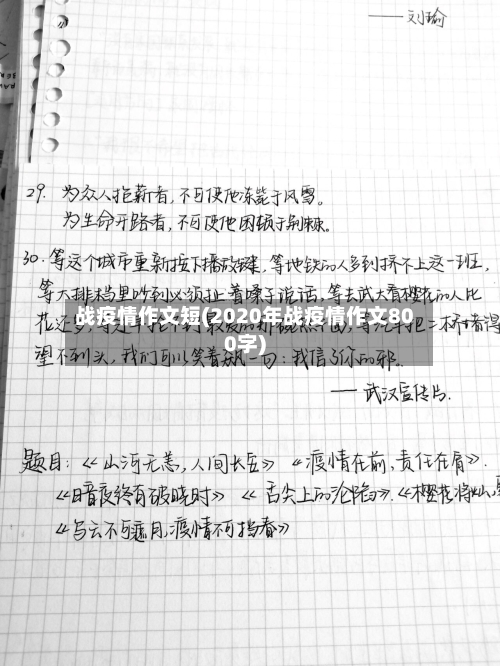 ——刘瑜
29. 为众人抱薪者，不可使他冻毙于风雪。
为生命开路者，不可使他困顿于荆棘。
30. 等这个城市重新按下播放键，等地铁的人多到挤不上这一班，
等大排档里吵到必须扯着嗓子说话，等去武大看樱花的人比
花还多，等
战疫情作文短(2020年战疫情作文80
0字)
望不到头，我们可以笑着飙一句：我信了你的邪。
——武汉宣传片
题目：《山河无恙，人间长安》《疫情在前，责任在肩》.
《暗夜终有破晓时》《舌尖上的沦陷》.《樱花将灿，
《乌云不可遮月，疫情不可挡春》